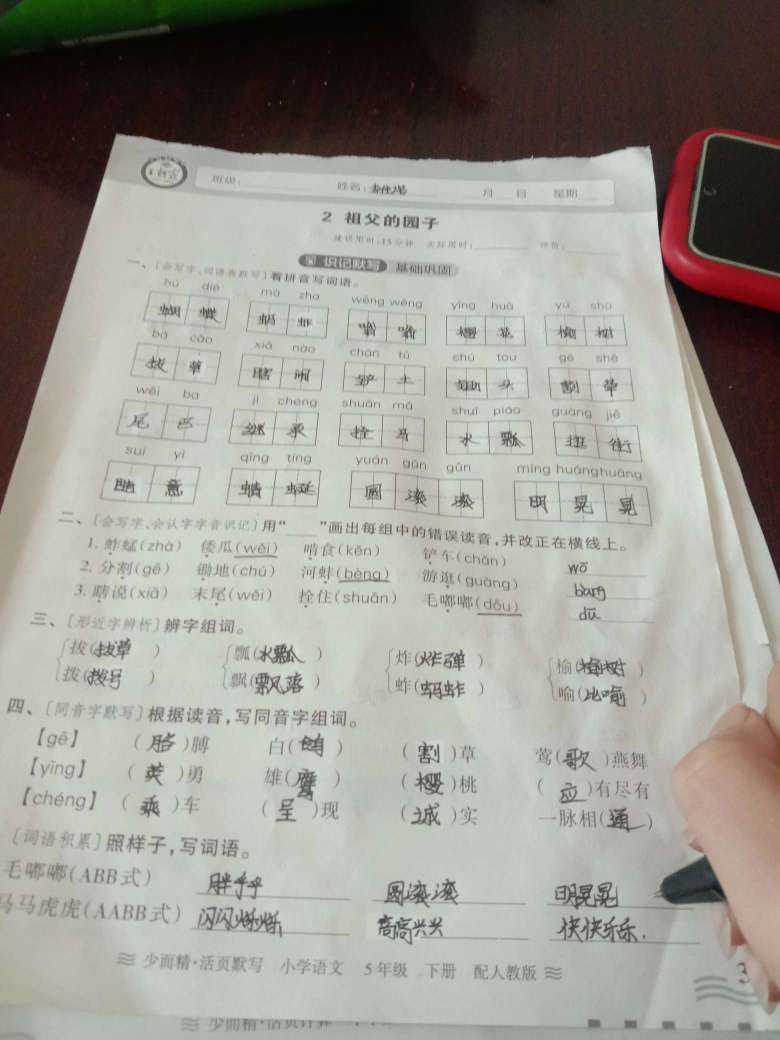 班级: 姓名: 月 日 星期
2 祖父的园子
建议用时:15分钟 实际用时: 评价:
识记默写 基础巩固
一、[会写字、词语表默写]看拼音写词语。
hú dié mà zha wēng wēng yīng huā yú shù
蝴 蝶 蚂 蚱 嗡 嗡 樱 花 榆 树
bá cǎo xiā nào chǎn tǔ chú tou gē shě
拔 草 瞎 闹 铲 土 锄 头 割 舍
wěi ba jì chéng shuān mǎ shuǐ piáo guàng jiē
尾 巴 继 承 拴 马 水 瓢 逛 街
suí yì qīng tíng yuán gǔn gǔn míng huǎng huǎng
随 意 蜻 蜓 圆 滚 滚 明 晃 晃
二、[会写字、会认字字音识记]用“____”画出每组中的错误读音,并改正在横线上。
1. 蚱蜢(zhà) 倭瓜(wēi) 啃食(kěn) 铲车(chǎn) wō
2. 分割(gē) 锄地(chú) 河蚌(bèng) 游逛(guàng) bàng
3. 瞎说(xiā) 末尾(wěi) 拴住(shuān) 毛嘟嘟(dōu) dū
三、[形近字辨析]辨字组词。
拔(拔草) 瓢(水瓢) 炸(炸弹) 榆(榆树)
拨(拨号) 飘(飘落) 蚱(蚂蚱) 喻(比喻)
四、[同音字默写]根据读音,写同音字组词。
【gē】 (胳)膊 白(鸽) (割)草 莺(歌)燕舞
【yīng】 (英)勇 雄(鹰) (樱)桃 (应)有尽有
【chéng】 (乘)车 (呈)现 (诚)实 一脉相(通)
[词语积累]照样子,写词语。
毛嘟嘟(ABB式) 胖乎乎 圆滚滚 明晃晃
马马虎虎(AABB式) 闪闪烁烁 高高兴兴 快快乐乐.
少而精·活页默写 小学语文 5年级 下册 配人教版 3
少而精·活页计算